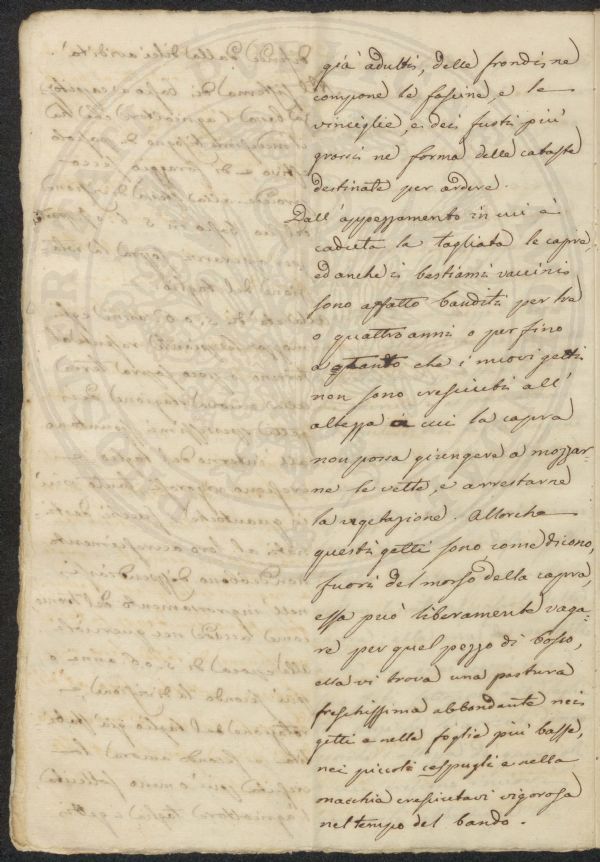 già adulti, delle frondi ne
compone le fascine, e le
vinciglie, e dei fusti più
grossi ne forma delle cataste
destinate per ardere.
Dall'appezzamento in cui è
caduta la tagliata le capre,
ed anche i bestiami vaccini
sono affatto banditi per tre
o quattro anni o per fino
a quanto che i nuovi getti
non sono cresciuti all'
altezza a cui la capra
non possa giungere a mozzar-
ne le vette, e arrestarne
la vegetazione. Allorche
questi getti sono, come dicono,
fuori del morso della capra,
essa può liberamente vaga-
re per quel pezzo di bosco,
ella vi trova una pastura
freschissima abbondante nei
getti e nelle foglie più basse,
nei piccoli cespugli e nella
macchia cresciutavi vigorosa
nel tempo del bando.